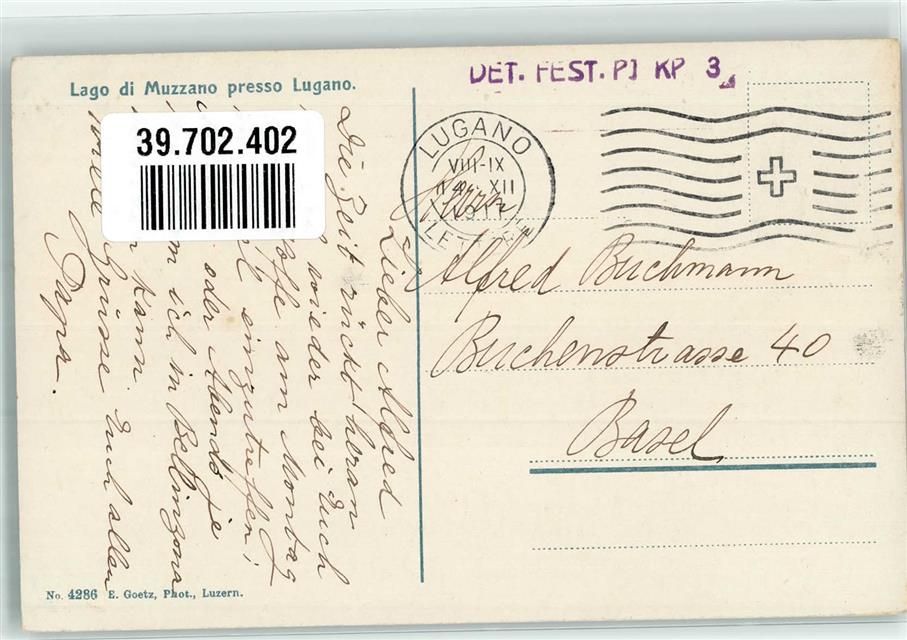 Lago di Muzzano presso Lugano.
DET. FEST. PI KP 3
39.702.402
LUGANO
VIII-IX
XII
Herrn
Alfred Buchmann
Buchenstrasse 40
Basel
Lieber Alfred
Die Zeit rückt heran
wieder bei Euch
am Montag
einzutreffen;
oder Abend je
ich in Bellinzona
kann.
Grüsse Euch allen
Papa.
No. 4286 E. Goetz, Phot., Luzern.